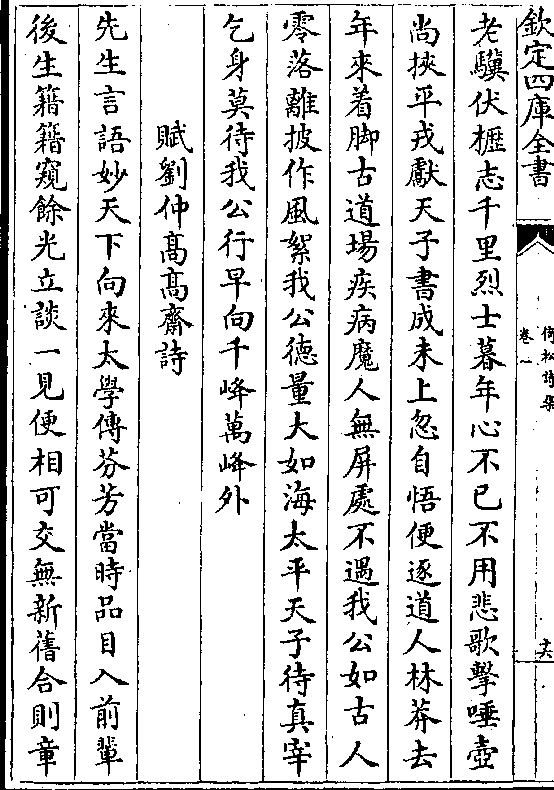 欽定四庫全書
倚松詩集
卷一
十六
老驥伏櫪志千里烈士暮年心不已不用悲歌擊唾壺
尚挾平戎獻天子書成未上忽自悟便逐道人林莽去
年來着脚古道場疾病魔人無屏處不遇我公如古人
零落離披作風絮我公德量大如海太平天子待真宰
乞身莫待我公行早向千峰萬峰外
賦劉仲髙髙齋詩
先生言語妙天下向來太學傳芬芳當時品目入前輩
後生籍籍窺餘光立談一見便相可交無新舊合則章